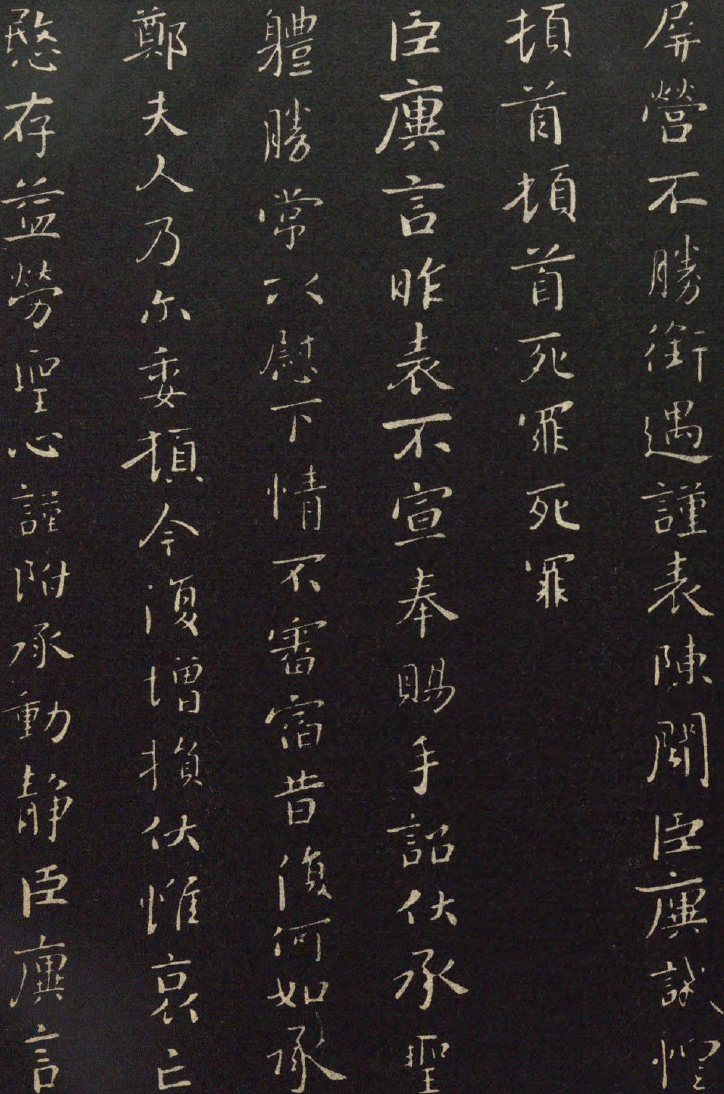 屏營不勝銜遇謹表陳聞臣廙誠惶
頓首頓首死罪死罪
臣廙言昨表不宣奉賜手詔伏承聖
體勝常以慰下情不審宿昔復何如承
鄭夫人乃尓委頓今復增損伏惟哀亡
愍存益勞聖心謹附承動靜臣廙言